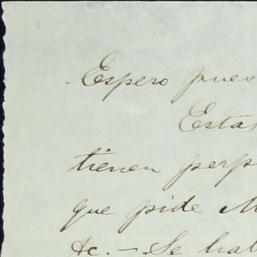 Espero pues
Esta
tienen perp
que pide M
&c. — Se hal